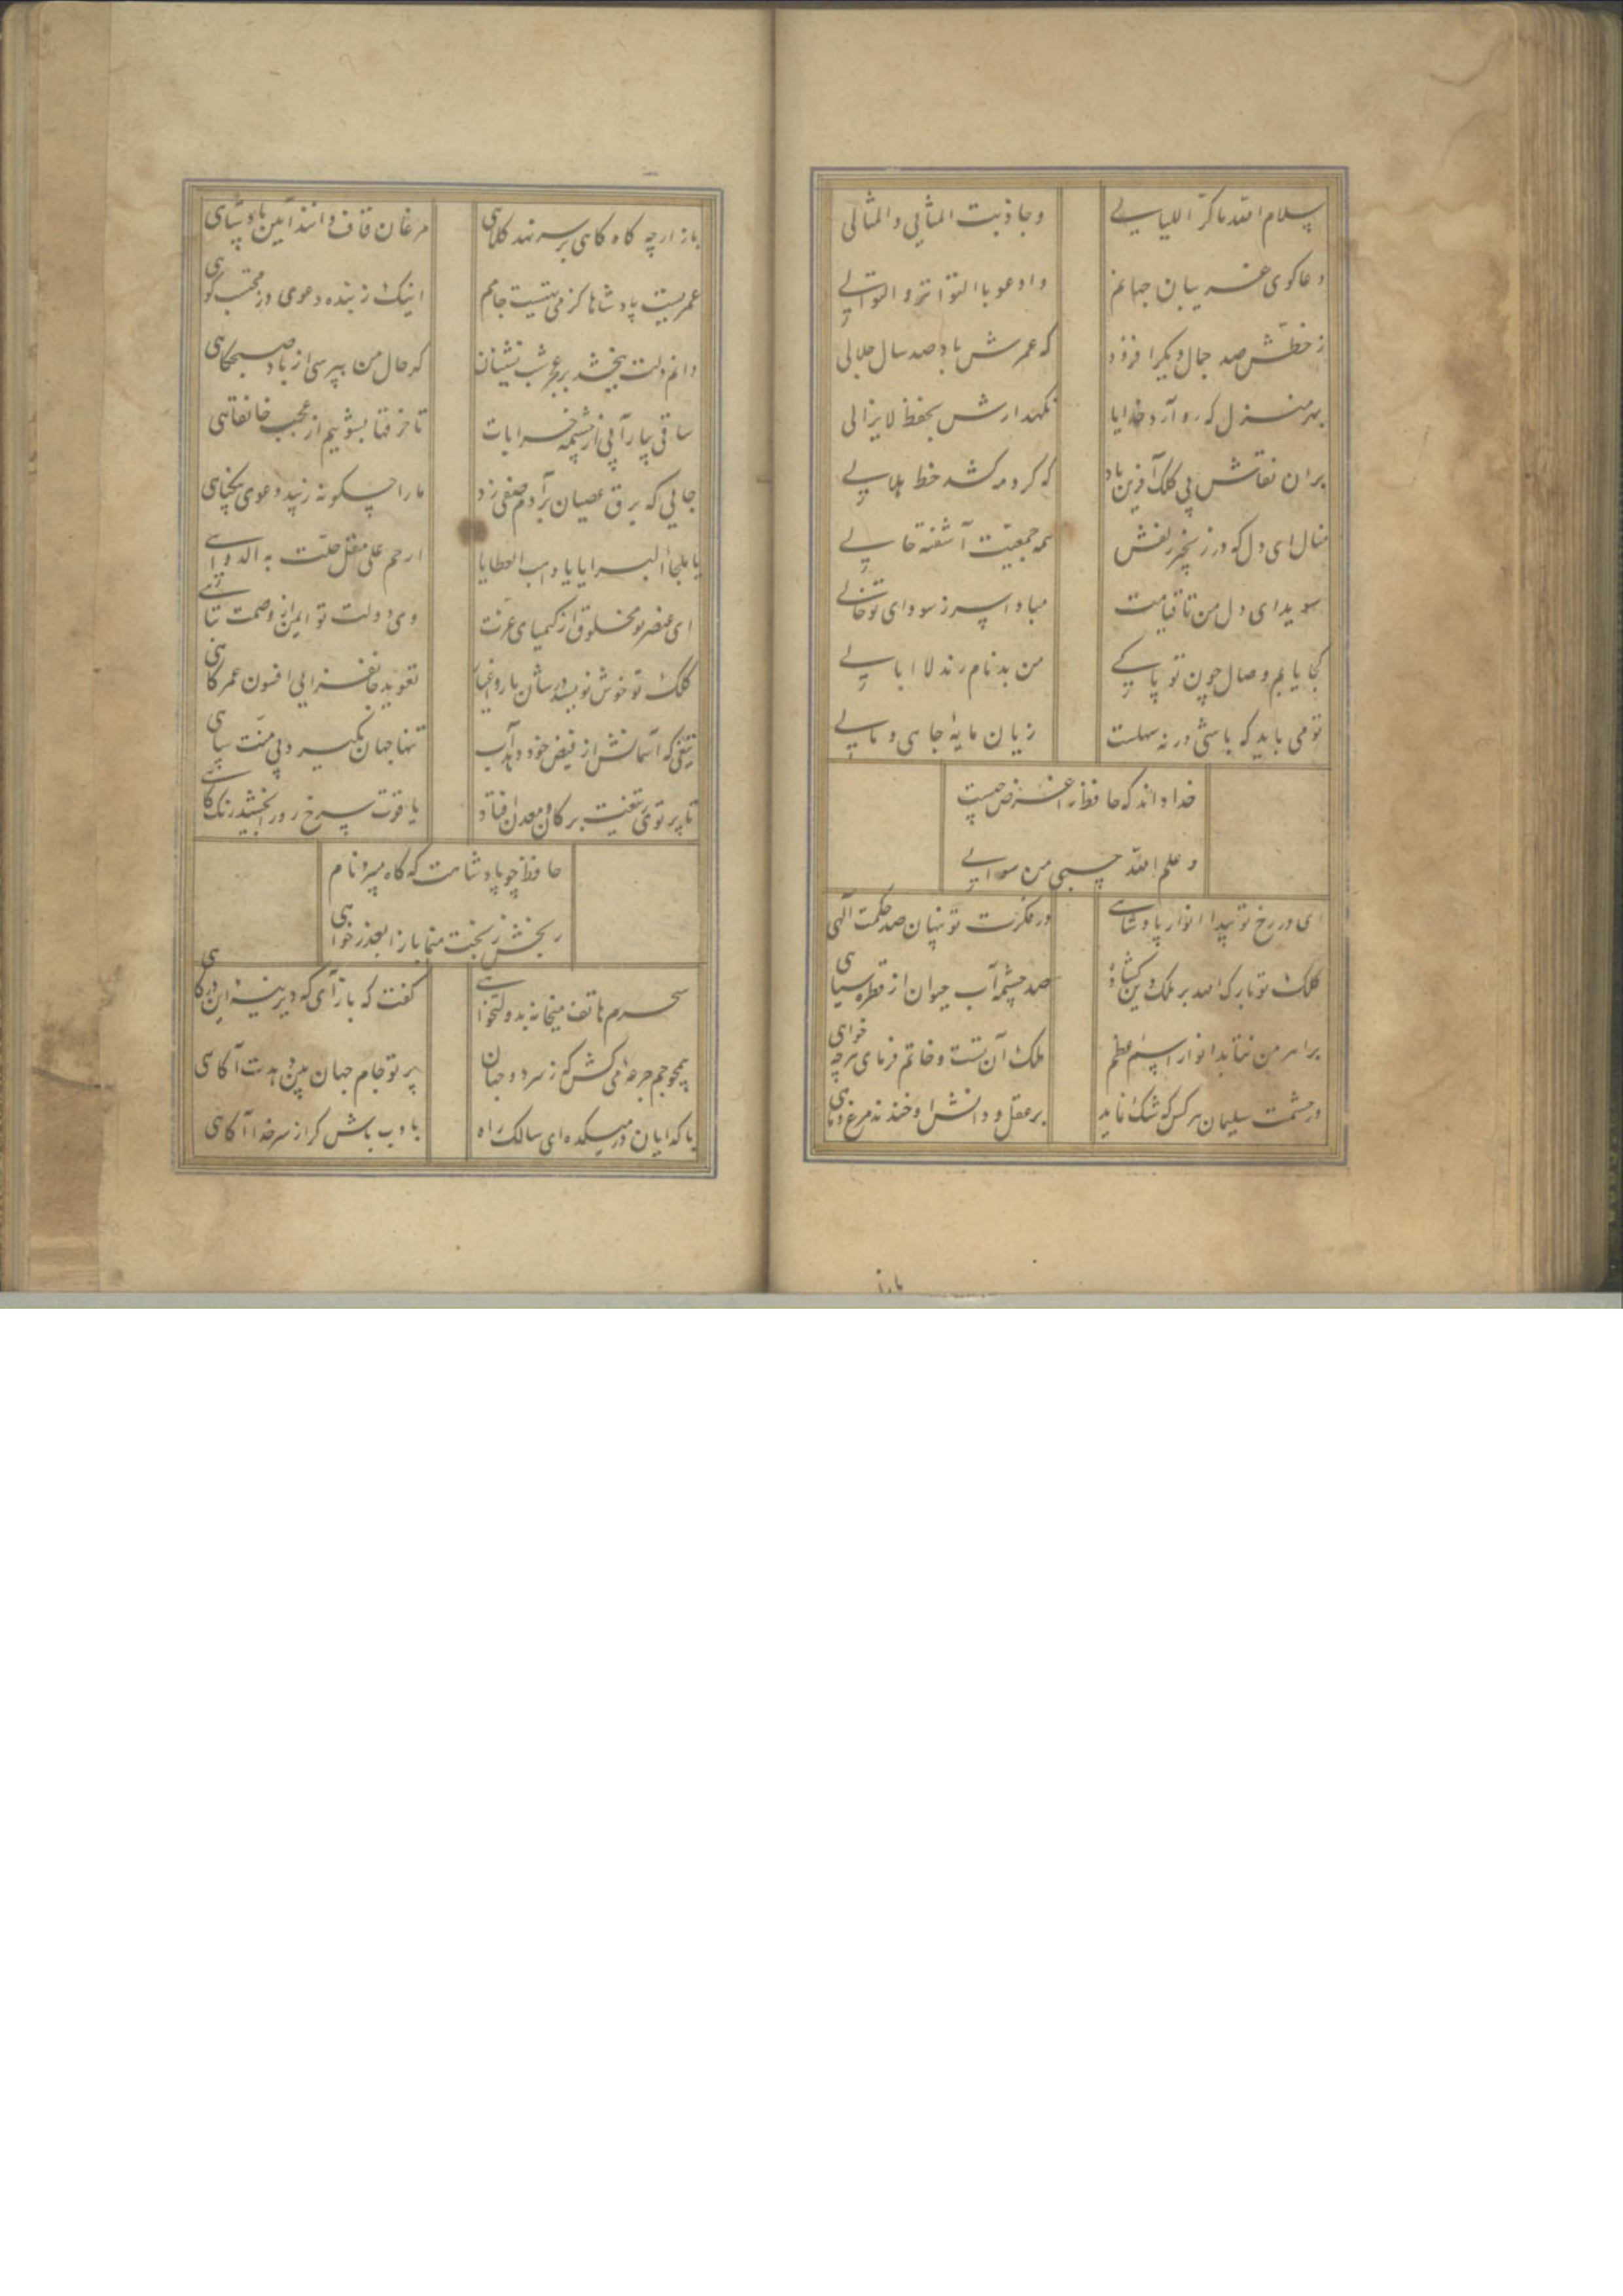 سلام الله ما کر اللیالی
وجاذبت المثانی و المثالی
دعاکوی غریبان جهانم
و ادعو با التواتر و التوالی
ز خطش صد جمال دیکر افزود
که عمرش باد صد سال جلالی
بهر منزل که رو آرد خدایا
نکهدارش بحفظ لایزالی
بران نقاش بی کلک آفرین باد
که کرد مه کشد خط هلالی
منال ای دل که در زنجیر زلفش
همه جمعیت آشفته حالی
سویدای دل من تا قیامت
مباد اسر ز سودای تو خالی
کجا یابم وصال چون تو
من بدنام رند لا ابالی
تو می باید که باشی ور نه سهلست
زیان مایهٔ جاهی و مالی
خدا داند که حافظ را غرض چیست
و علم الله حسبی من سوالی
ای در رخ تو پیدا انوار پادشاهی
در فکرت تو پنهان صد حکمت الهی
کلک تو بارک الله بر ملک و دین کشاده
صد چشمه آب حیوان از قطره سیاهی
بر اهرمن نتابد انوار اسم اعظم
ملک آن تست و خاتم فرمای هرچه خواهی
در حشمت سلیمان هر کس که شک نماید
بر عقل و دانش او خندند مرغ و ماهی
باز
باز ارچه کاه کاهی بر سر نهد کلاهی
مرغان قاف دانند آیین پادشاهی
عمریست پادشاها کز می تهیست جامم
اینک ز بنده دعوی وز محتسب کواهی
دانم دلت ببخشد بر عجز شب نشینان
کر حال من بپرسی از باد صبحکاهی
ساقی بیار آبی از چشمه خرابات
تا خرقها بشوییم از عجب خانقاهی
جایی که برق عصیان بر آدم صفی زد
ما را چکونه زیبد دعوی بیکناهی
یا ملجأ البرایا یا واهب العطایا
ارحم علی مقل حلت به الدواهی
ای عنصر تو مخلوق از کیمیای عزت
وی دولت تو ایمن از وصمت تباهی
کلک تو خوش نویسد در شان یار و اغیار
تعوید جانفزایی افسون عمر کاهی
تیغی که آسمانش از فیض خود دهد آب
تنها جهان بکیرد بی منت سپاهی
تا پرتوی ز تیغت بر کان و معدن افتاد
یاقوت سرخ رو را بخشید رنک کاهی
حافظ چو پادشاهت که کاه میبرد نام
رنجش ز بخت منما باز ا بعذر خواهی
سحرم هاتف میخانه بدولتخواهی
کفت که باز آی که دیرینه این درکاهی
همچو جم جرعه می کش که ز سر دو جهان
پرتو جام جهان بین دهدت آکاهی
با کدایان در میکده ای سالک راه
با ادب باش کر از سر خدا آکاهی